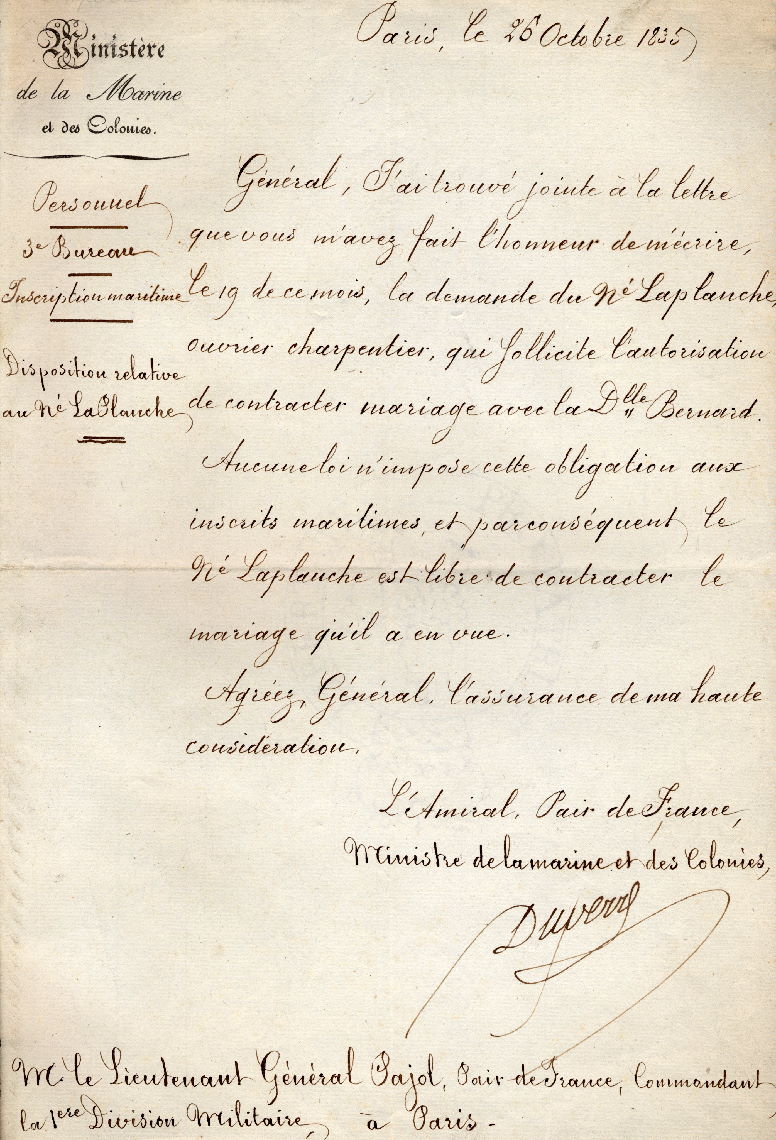 Ministère
de la Marine
et des Colonies.
Paris, le 26 Octobre 1835
Personnel
3e Bureau
Inscription maritime
Disposition relative
au Né LaPlanche
Général, J'ai trouvé jointe à la lettre
que vous m'avez fait l'honneur de m'écrire,
le 19 de ce mois, la demande du Né Laplanche,
ouvrier charpentier, qui sollicite l'autorisation
de contracter mariage avec la Dlle Bernard.
Aucune loi n'impose cette obligation aux
inscrits maritimes, et par conséquent le
Né Laplanche est libre de contracter le
mariage qu'il a en vue.
Agréez, Général, l'assurance de ma haute
considération.
L'Amiral, Pair de France,
Ministre de la marine et des Colonies,
Duperré
M. le Lieutenant Général Pajol, Pair de France, Commandant
la 1ere Division Militaire, à Paris -